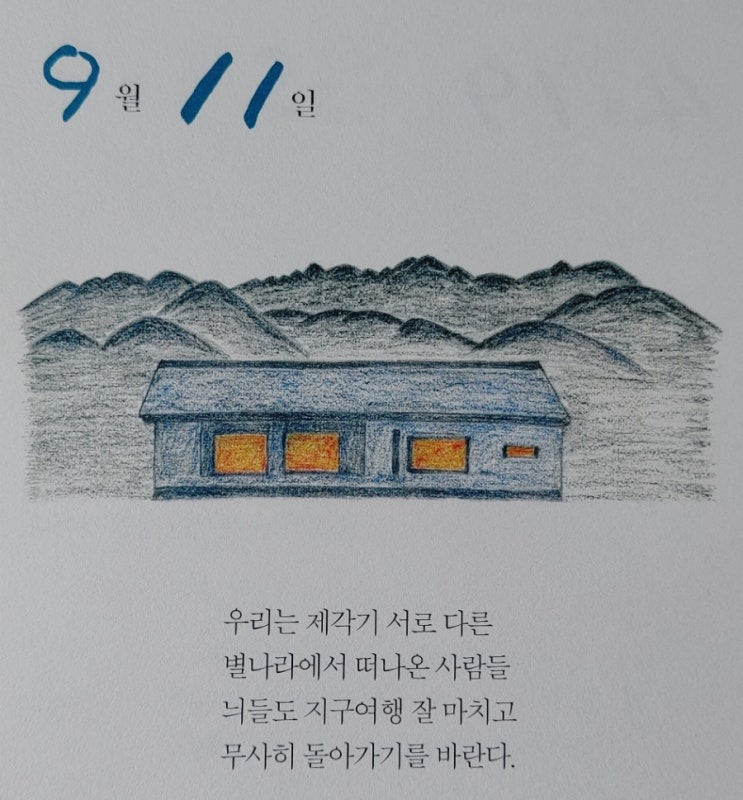 9월 11일
우리는 제각기 서로 다른
별나라에서 떠나온 사람들
늬들도 지구여행 잘 마치고
무사히 돌아가기를 바란다.